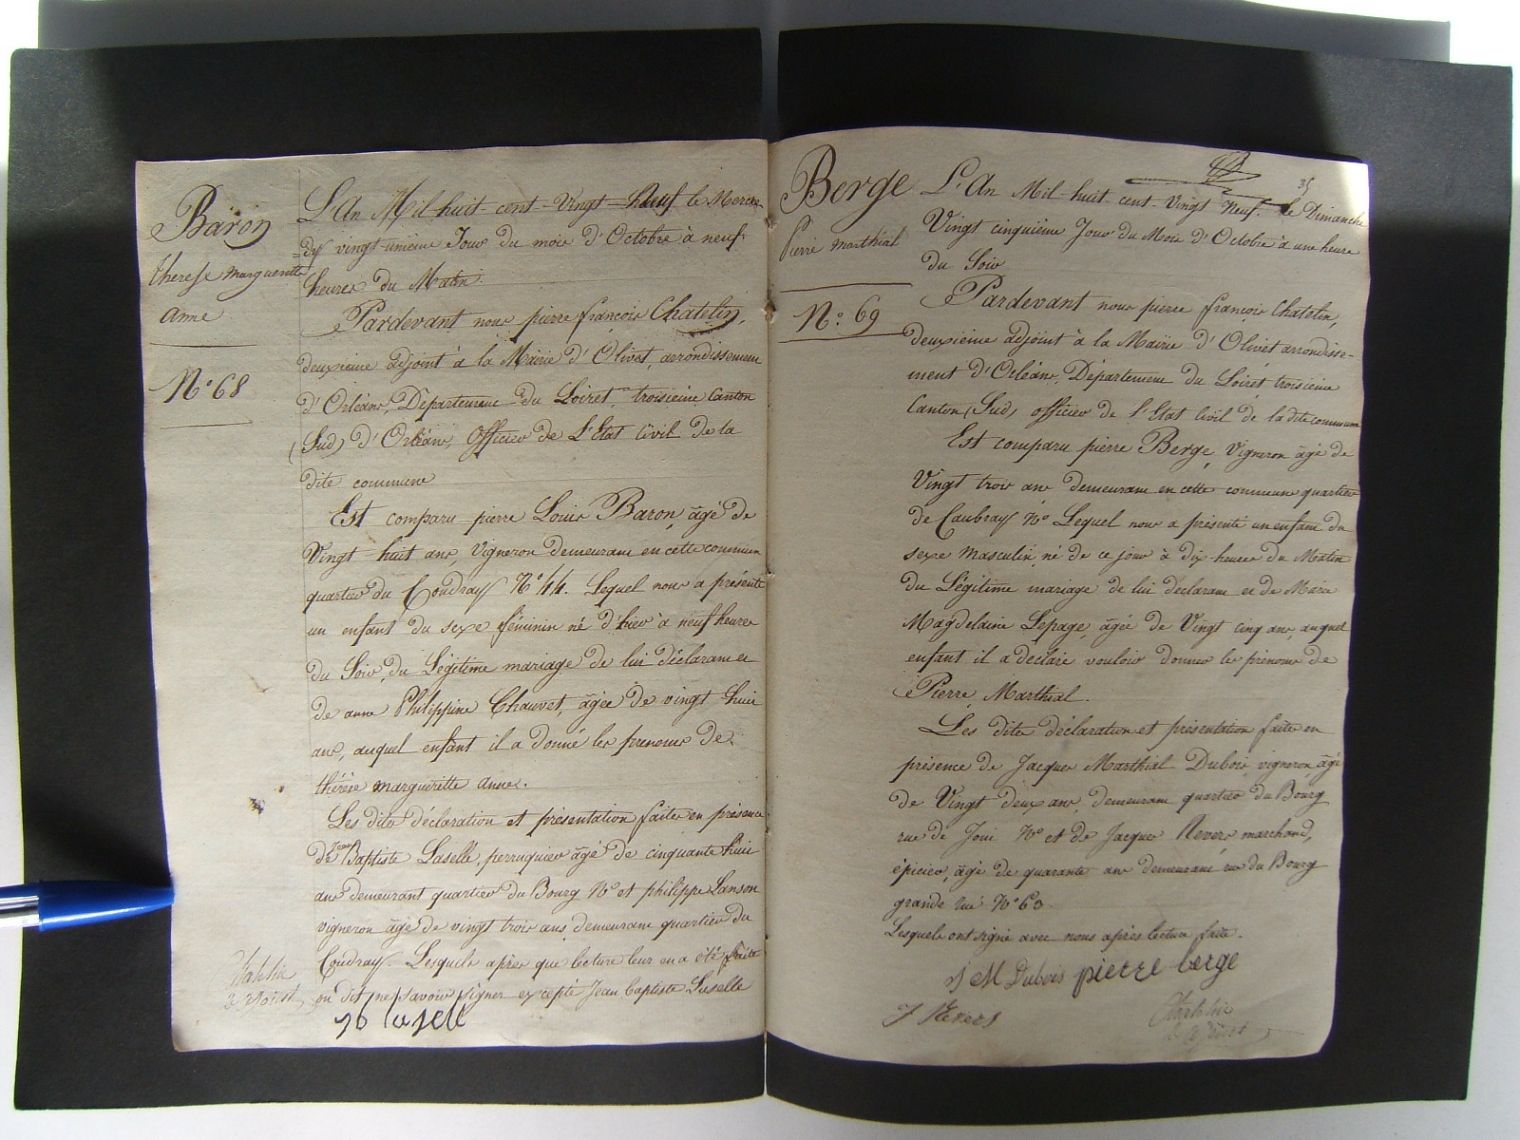 Baron
therese marguerite
anne
N° 68
L'An Mil huit cent Vingt Neuf le Mercre-
dy vingt unième Jour du mois d'Octobre à neuf
heures du Matin.
Pardevant nous pierre françois Chatelin,
deuxieme adjoint à la Mairie d'Olivet, arrondissement
d'Orléans, Département du Loiret troisieme Canton
(Sud) d'Orléans officier de L'État Civil de la
dite commune
Est comparu pierre Louis Baron, âgé de
Vingt huit ans, Vigneron demeurant en cette commune
quartier du Coudray N° 44. Lequel nous a présenté
un enfant du sexe féminin né d'hier à neuf heures
du Soir, du Légitime mariage de lui déclarant et
de anne Philippine Chauvet, âgée de vingt huit
ans, auquel enfant il a donné les prenoms de
thérèse marguerite anne.
Les dites déclaration et présentation faites en présence
de Jean Baptiste Laselle, perruquier âgé de cinquante huit
ans demeurant quartier du Bourg N° et philippe Sanson
vigneron âgé de vingt trois ans, demeurant quartier du
Coudray. Lesquels après que lecture leur en a été faite
ont dit ne savoir signer excepté Jean baptiste Laselle
jb laselle
Berge
Pierre marthial
N° 69
35
L'An Mil huit cent Vingt Neuf le Dimanche
Vingt cinquième Jour du Mois d'Octobre à une heure
du Soir
Pardevant nous pierre françois Chatelin,
deuxième adjoint à la Mairie d'Olivet arrondisse-
ment d'Orléans, Département du Loiret troisieme
Canton (Sud) officier de l'Etat Civil de la dite commune
Est comparu pierre Berge, Vigneron âgé de
Vingt trois ans demeurant en cette commune quartier
de Caubray N° Lequel nous a présenté un enfant du
sexe masculin, né de ce jour à dix heures du Matin
du Légitime mariage de lui déclarant et de Marie
Magdelaine Lepage, âgée de Vingt cinq ans, auquel
enfant il a déclaré vouloir donner les prénoms de
Pierre Marthial.
Les dites déclaration et présentation faites en
présence de Jacques Marthial Dubois, vigneron, âgé
de Vingt deux ans, demeurant quartier du Bourg
rue de Joui N° et de Jacques Nevers marchand,
épicier, âgé de quarante ans demeurant rue du Bourg
grande rue N° 63.
Lesquels ont signé avec nous après lecture faite.
J M Dubois pierre berge
J Nevers